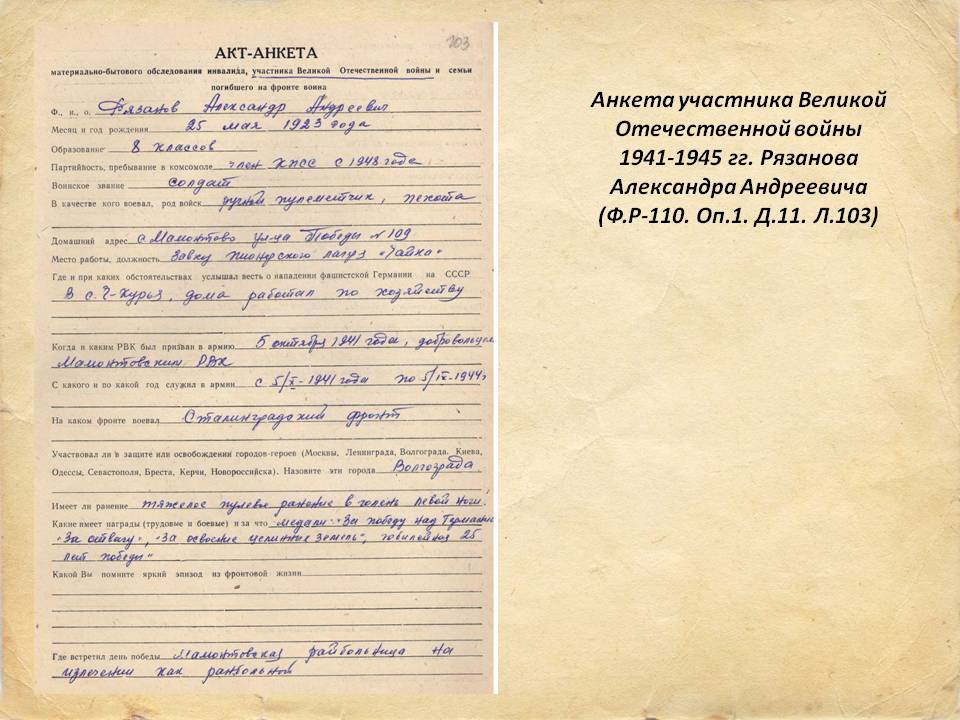 103
АКТ-АНКЕТА
материально-бытового обследования инвалида, участника Великой Отечественной войны и семьи
погибшего на фронте воина
Ф., и., о. Рязанов Александр Андреевич
Месяц и год рождения 25 мая 1923 года
Образование 8 классов
Партийность, пребывание в комсомоле член КПСС с 1948 года
Воинское звание солдат
В качестве кого воевал, род войск ручной пулеметчик, пехота
Домашний адрес с Мамонтово улица Победы № 109
Место работы, должность завхоз пионерского лагеря "Чайка"
Где и при каких обстоятельствах услышал весть о нападении фашистской Германии на СССР
В с. , дома работал по хозяйству
Когда и каким РВК был призван в армию 5 октября 1941 года, добровольцем
Мамонтовским РВК
С какого и по какой год служил в армии с 5/X-1941 года по 5/IX-1944г
На каком фронте воевал Сталинградский фронт
Участвовал ли в защите или освобождении городов-героев (Москвы, Ленинграда, Волгограда, Киева,
Одессы, Севастополя, Бреста, Керчи, Новороссийска). Назовите эти города Волгограда
Имеет ли ранение тяжелое пулевое ранение в голень левой ноги.
Какие имеет награды (трудовые и боевые) и за что медали: "За победу над Германией
"За отвагу", "За освоение целинных земель", юбилейная 25
лет победы"
Какой Вы помните яркий эпизод из фронтовой жизни
Где встретил день победы Мамонтовская райбольница на
излечении как ранбольной
Анкета участника Великой
Отечественной войны
1941-1945 гг. Рязанова
Александра Андреевича
(Ф.Р-110. Оп.1. Д.11. Л.103)